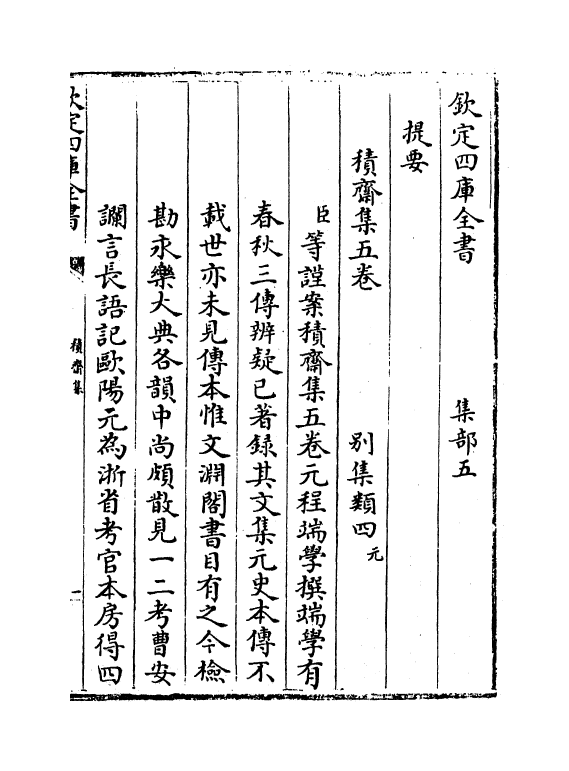 欽定四庫全書　　　　集部五
提要
積齋集五卷　　　　别集類四元
臣等謹案積齋集五卷元程端學撰端學有
春秋三傳辨疑已著録其文集元史本傳不
載世亦未見傳本惟文淵閣書目有之今檢
勘永樂大典各韻中尚頗散見一二考曹安
讕言長語記歐陽元為浙省考官本房得四
欽定四庫全書
積齋集
一